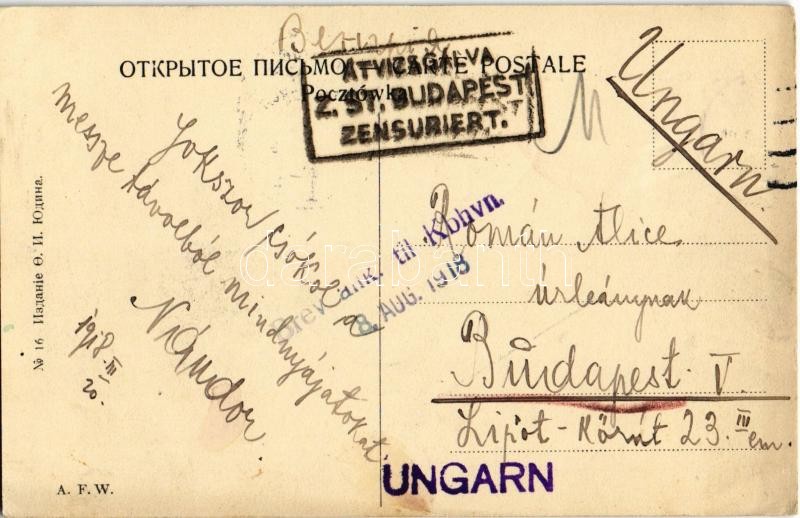 ОТКРЫТОЕ ПИСЬМО. CARTE POSTALE
Pocztówka
ÁTVIZSGÁLVA
Z. ST. BUDAPEST
ZENSURIERT.
Ungarn
Sokszor csókol a
messze távolból mindnyájatokat.
Nándor
1918. III
20.
Brev ank. til Kbhvn.
8. AUG. 1918
Román Alice
úrleánynak
Budapest V.
Lipót-Körút 23. III em.
UNGARN
№ 16 Изданіе Ѳ. И. Юдина.
A. F. W.
darabanth